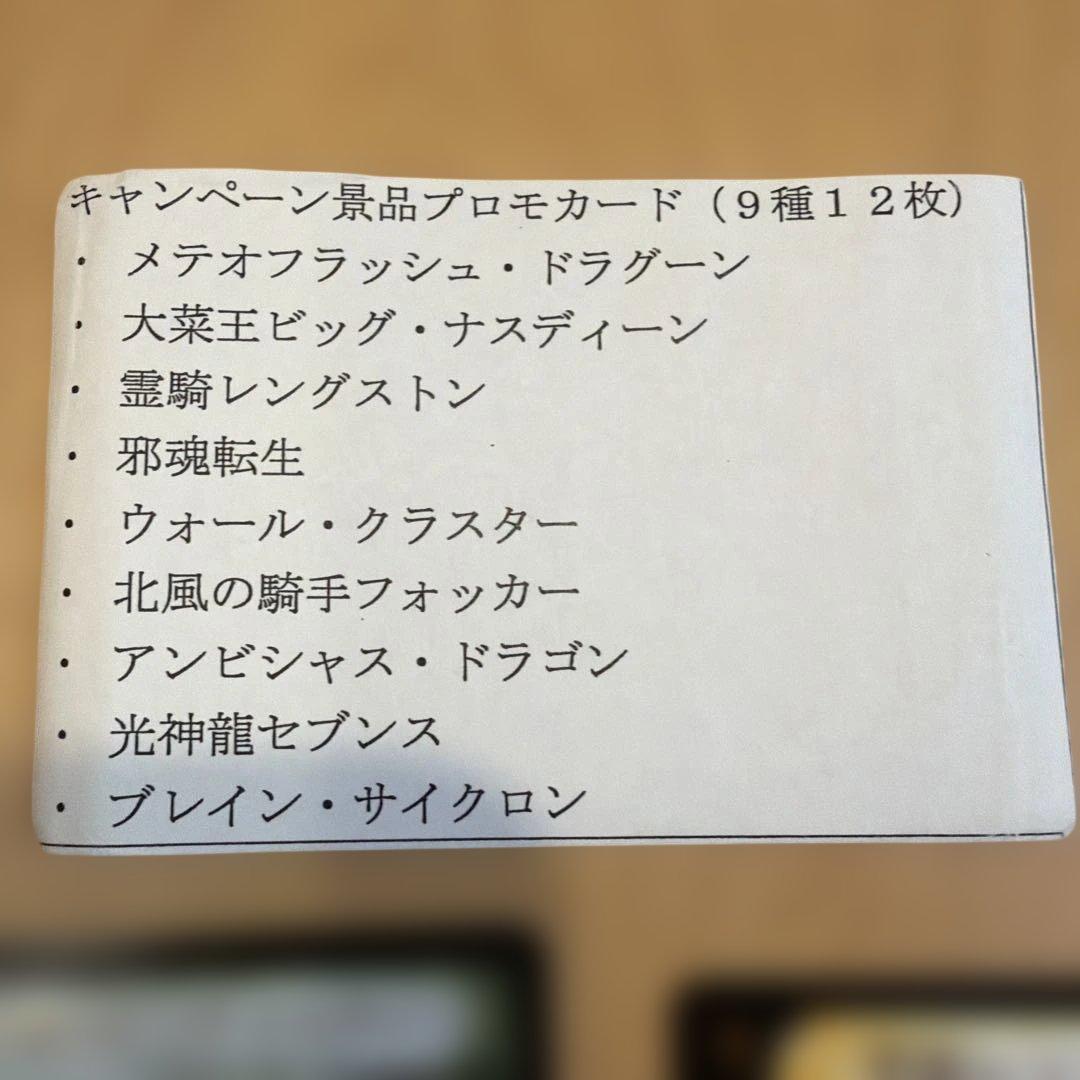 キャンペーン景品プロモカード（９種１２枚）
・ メテオフラッシュ・ドラグーン
・ 大菜王ビッグ・ナスディーン
・ 霊騎レングストン
・ 邪魂転生
・ ウォール・クラスター
・ 北風の騎手フォッカー
・ アンビシャス・ドラゴン
・ 光神龍セブンス
・ ブレイン・サイクロン